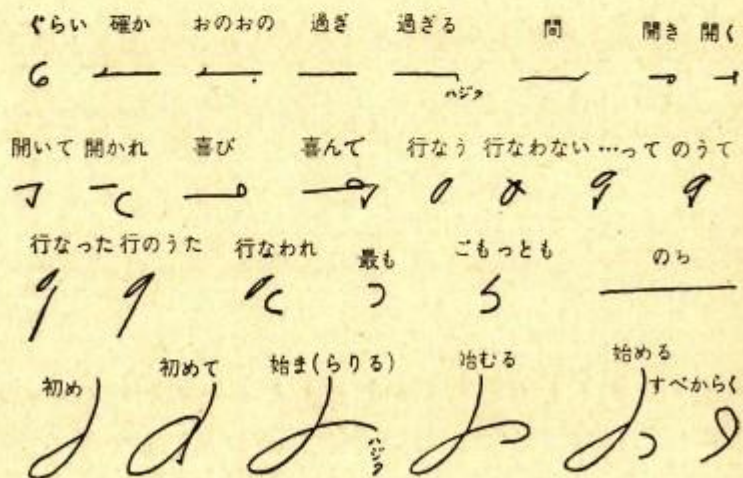 ぐらい 確か おのおの 過ぎ 過ぎる 間 開き 開く
ハジク
開いて 開かれ 喜び 喜んで 行なう 行なわない …って のうて
行なった 行のうた 行なわれ 最も ごもっとも のら
初め 初めて 始ま(らりる) 冶むる 始める すべからく
ハジク